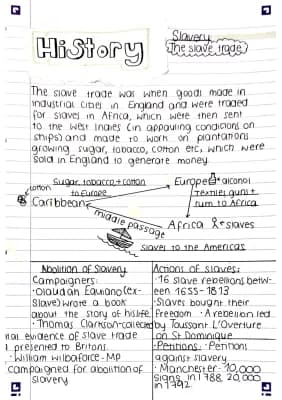 HiStory
Slavery
(The slave trade)
The slave trade was when goods made in
industrial cities in England and were traded
for slaves in Africa, which were then sent
to the West Indies (in appauling conditions on
ships) and made to work on plantations
growing sugar, tobacco, cotton etc, which were
sold in England to generate money.
Sugar, tobacco + cotton
to Europe
cotton
Caribbean
Europe + alcohol
Textiles, guns +
rum to Africa
middle passage
Africa + slaves
slaves to the Americas
Abolition of Slavery
Campaigners:
·Olaudah Equiano (ex-
Slave) wrote a book
about the story of his life.
·Thomas Clarkson-collected
nal evidence of slave trade
d presented to Britons.
·William Wilbaforce-MP
campaigned for abolition of
slavery
Actions of slaves:
·16 slave rebellions betw-
een 1655-1813
·Slaves bought their
freedom ·A rebellion led
by Toussant L'Overture
on St Dominique
·Petitions: Petitions
against slavery
·Manchester-10,000
signs in 1788 20,000
in 1792